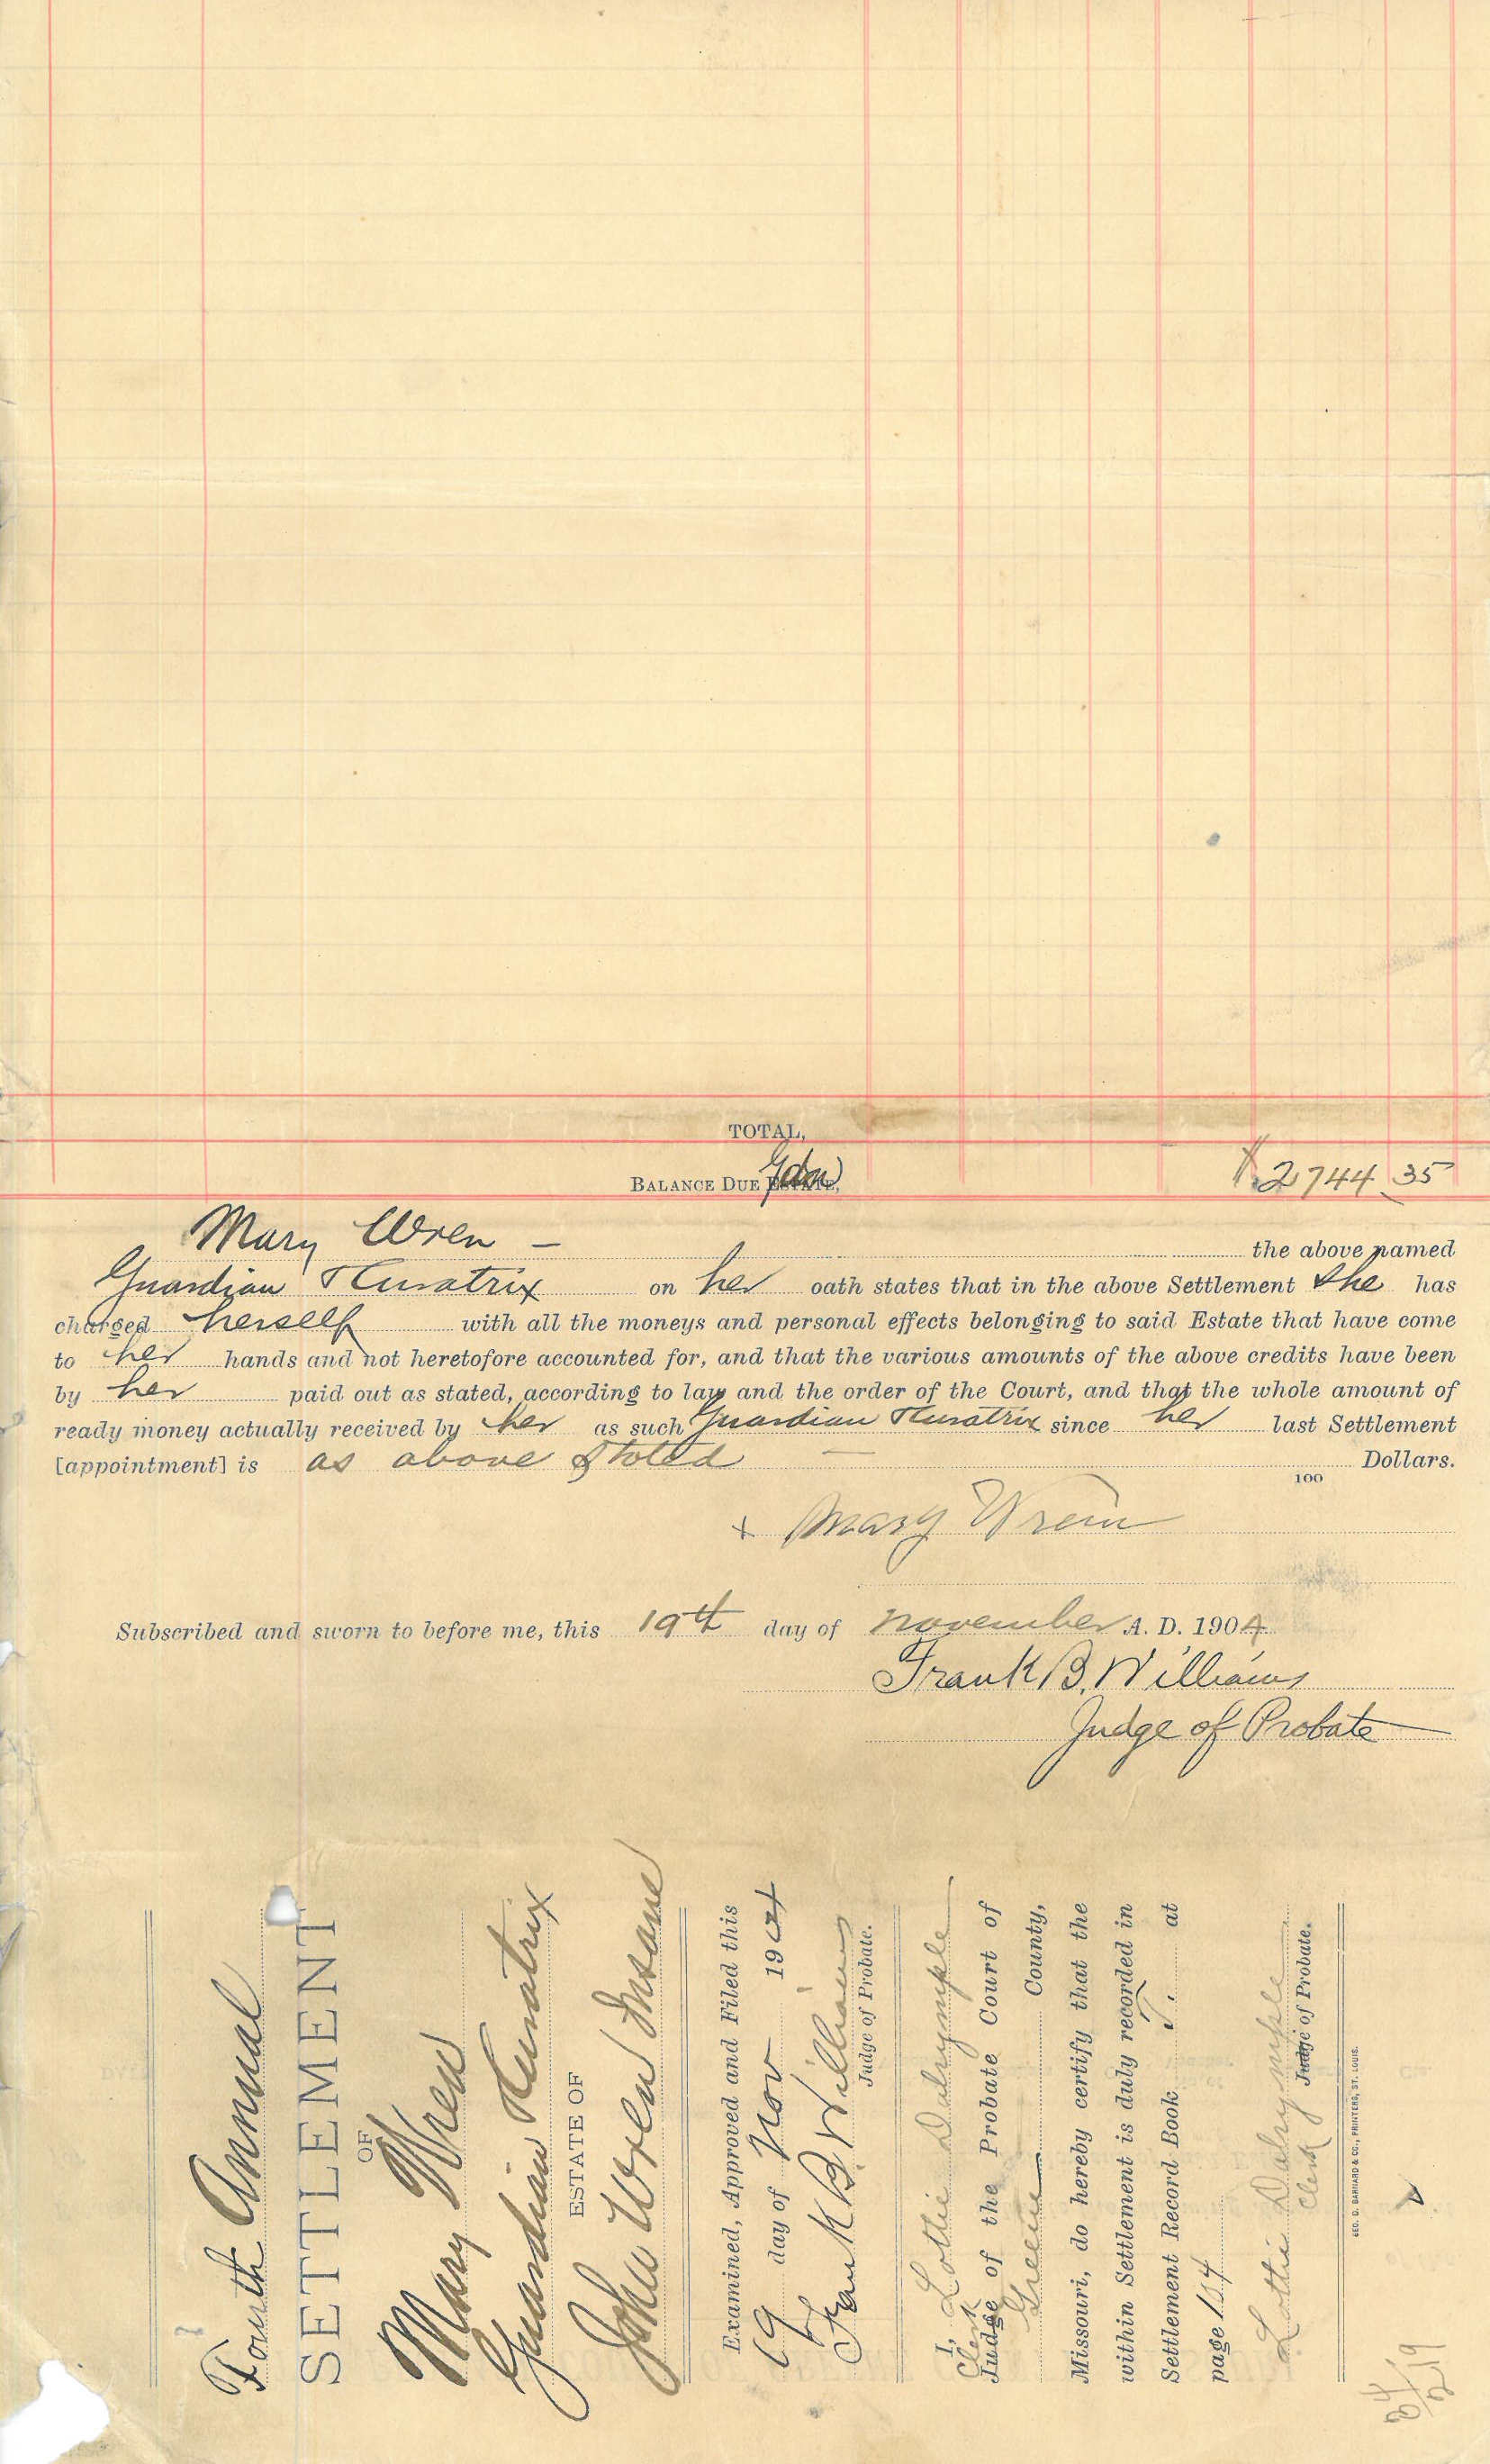 TOTAL,
BALANCE DUE ESTATE, Gdn $2744 35
Mary Wren — the above named
Guardian & Curatrix on her oath states that in the above Settlement she has
charged herself with all the moneys and personal effects belonging to said Estate that have come
to her hands and not heretofore accounted for, and that the various amounts of the above credits have been
by her paid out as stated, according to law and the order of the Court, and that the whole amount of
ready money actually received by her as such Guardian & Curatrix since her last Settlement
[appointment] is as above stated — Dollars.
100
x Mary Wren
Subscribed and sworn to before me, this 19th day of November A. D. 1904
Frank B. Williams
Judge of Probate
Fourth Annual
SETTLEMENT
OF
Mary Wren
Guardian & Curatrix
ESTATE OF
John Wren Insane
Examined, Approved and Filed this
19 day of Nov 1904
Frank B. Williams
Judge of Probate.
I, Lottie Dalrymple
Clerk
Judge of the Probate Court of
Greene County,
Missouri, do hereby certify that the
within Settlement is duly recorded in
Settlement Record Book T. at
page 154
Lottie Dalrymple
Clerk
Judge of Probate.
GEO. D. BARNARD & CO., PRINTERS, ST. LOUIS.